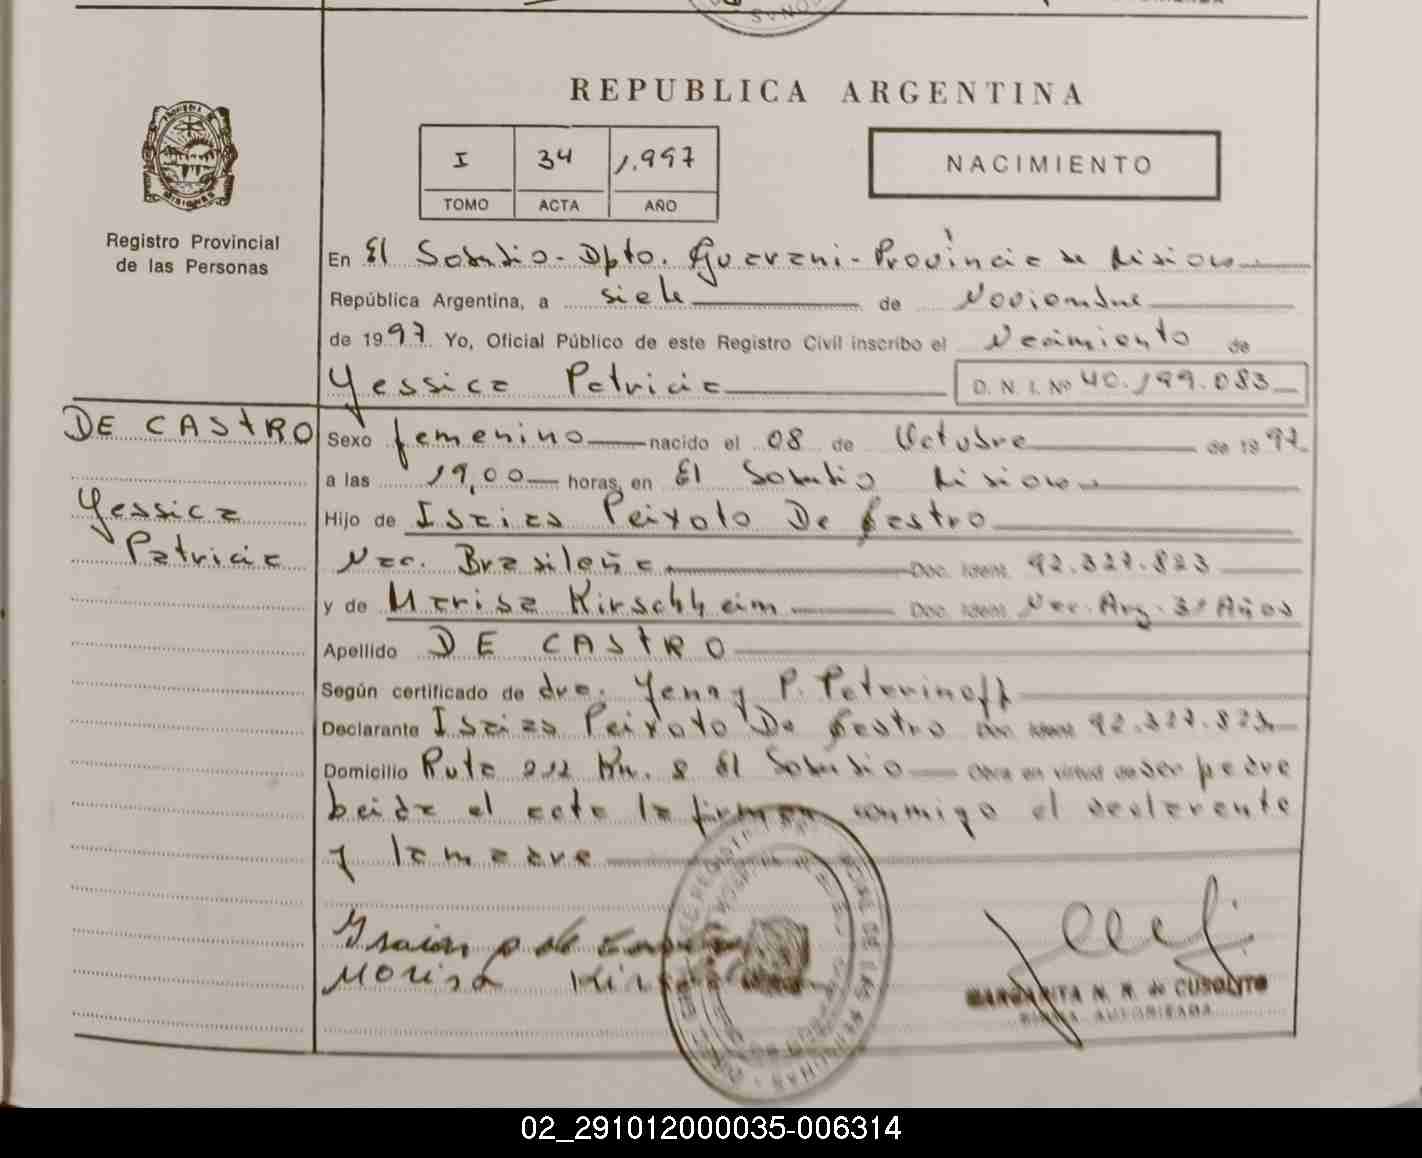 REPUBLICA ARGENTINA
I 34 1.997
TOMO ACTA AÑO
NACIMIENTO
Registro Provincial
de las Personas
En El Soberbio - Dpto. Guarani - Provincia de Misiones
República Argentina, a siete de Noviembre
de 1997 Yo, Oficial Público de este Registro Civil inscribo el Nacimiento de
Yessica Patricia D. N. I. Nº 40.199.083
DE CASTRO
Yessica
Patricia
Sexo femenino nacido el 08 de Octubre de 1997
a las 19,00 horas, en El Soberbio Misiones
Hijo de Isaias Peixoto De Castro
Nac. Brasileña Doc. Ident. 92.327.823
y de Marisa Kirschheim Doc. Ident. Nac. Arg. 31 Años
Apellido DE CASTRO
Según certificado de dra. Yenny P.
Declarante Isaias Peixoto De Castro Doc. Ident. 92.327.823
Domicilio Ruta 212 Km. 8 El Soberbio Obra en virtud de ser padre
Leida el acta la firman conmigo el declarante
y la madre
Marisa
MARGARITA N. R. de CUSOLITO
FIRMA AUTORIZADA
02_291012000035-006314